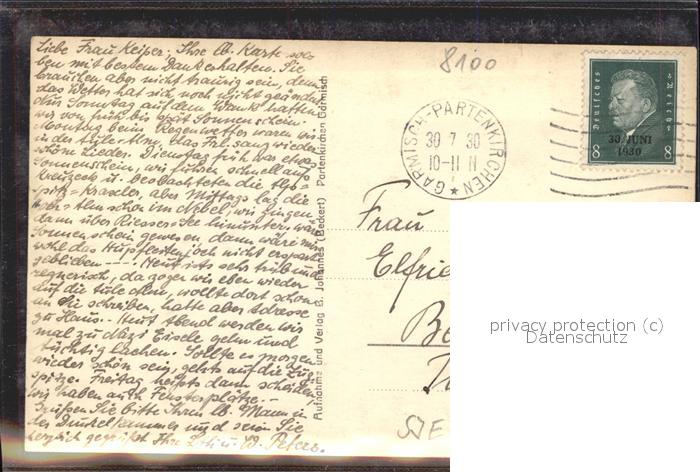 Liebe Frau Keiper, Ihre lb. Karte soe
ben mit bestem Dank erhalten. Sie
brauchen aber nicht traurig sein, denn
das Wetter hat sich noch nicht geändert
Sonntag auf dem Wank hatten
wir von früh bis spät Sonnenschein.
Montag beim Regenwetter waren wir
in der
schöne Lieder. Dienstag früh war etwas
Sonnenschein, wir fuhren schnell aufs
Kreuzeck u. beobachteten die
Kraxler, aber Mittags lag die
schon im Nebel, wir gingen
dann über Riessersee hinunter, wär
Sonnenschein gewesen, dann wäre mir
wohl das Hupfleitenjoch nicht erspart
geblieben --- Heut ists sehr trüb und
regnerisch, da zogen wir eben wieder
auf die Alm, wollte dort schon
an Sie schreiben, hatte aber Adresse
zu Haus. - Heut Abend werden wir
mal zu Eisele gehn und
tüchtig lachen. Sollte es morgen
wieder schön sein, gehts auf die Zug-
spitze. Freitag heißts dann scheiden,
wir haben auch Fensterplätze. -
Grüßen Sie bitte Ihren lb. Mann in
der Dunkelkammer und seien Sie
herzlich gegrüßt Ihre u. W. Peters.
Aufnahme und Verlag B. Johannes (Beckert) Partenkirchen Garmisch
8100
GARMISCH-PARTENKIRCHEN
30 7 30
10-11 V
Deutsches Reich
30. JUNI
1930
8 8
Frau
Elfrie
Be
privacy protection (c)
Datenschutz